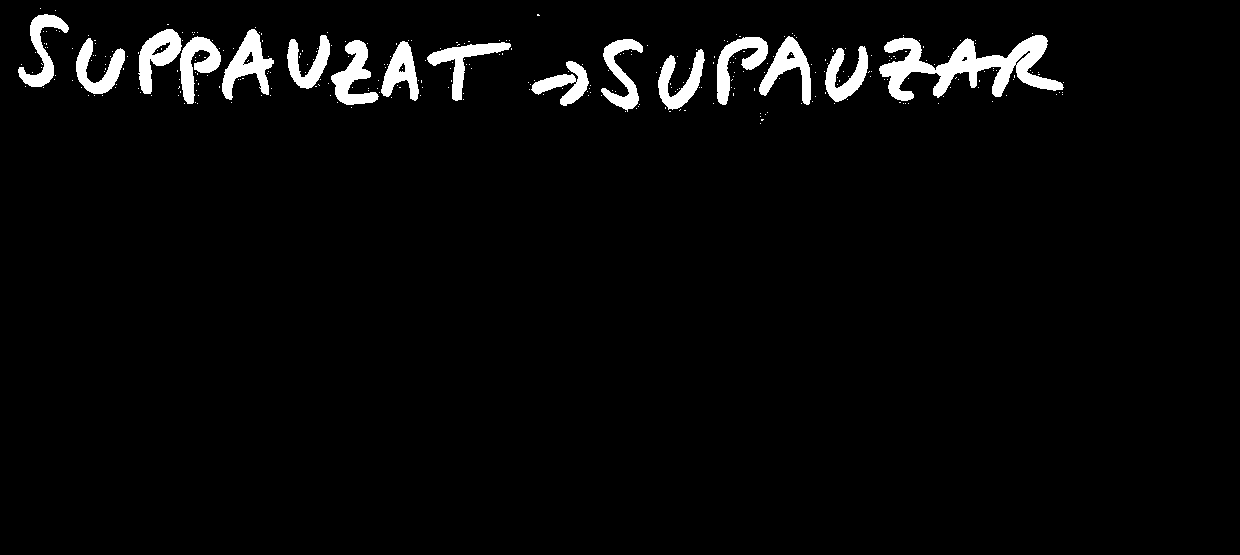 SUPPAUZAT → SUPAUZAR